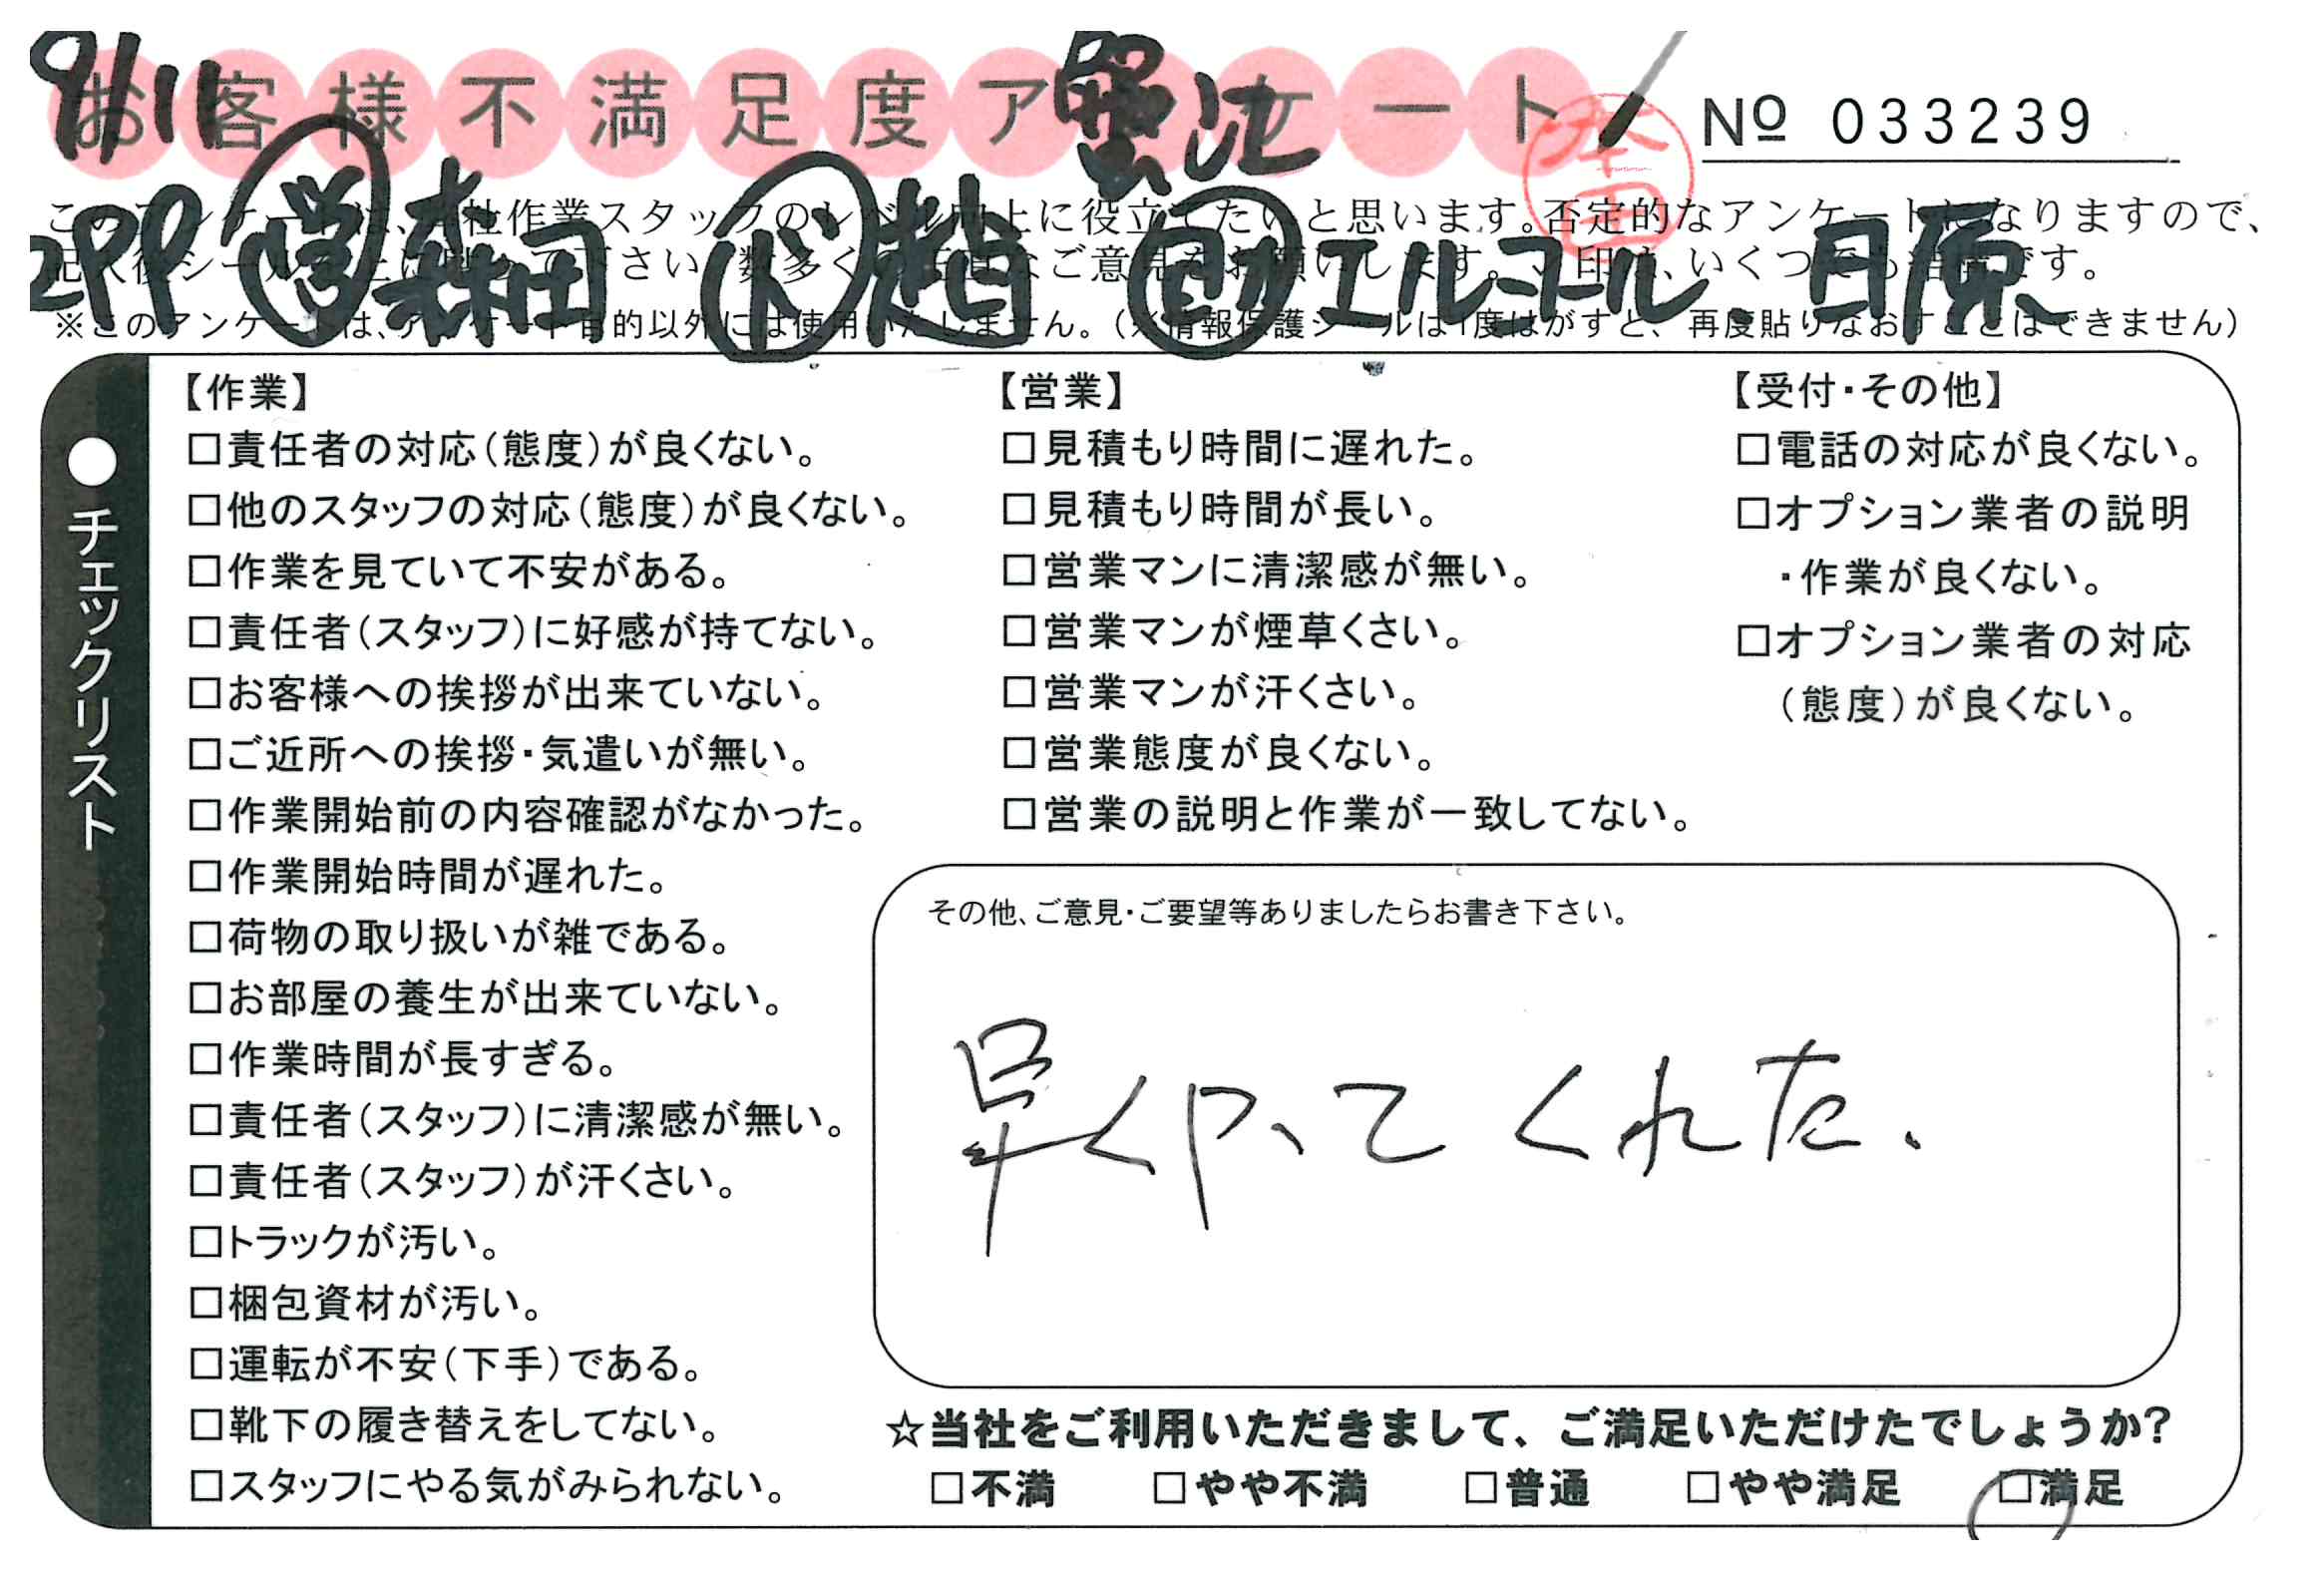 9/11
お客様不満足度アンケート
蟹江
№ 033239
本田
2PP 営 森田 ド 趙 助 エルヨール、日原
このアンケートは、当社作業スタッフのレベル向上に役立てたいと思います。否定的なアンケートになりますので、
記入後シールを上に貼って下さい。数多くの正直なご意見をお願いします。レ印は、いくつでも結構です。
※このアンケートは、アンケート目的以外には使用いたしません。(※情報保護シールは1度はがすと、再度貼りなおすことはできません)
●チェックリスト
【作業】
□責任者の対応(態度)が良くない。
□他のスタッフの対応(態度)が良くない。
□作業を見ていて不安がある。
□責任者(スタッフ)に好感が持てない。
□お客様への挨拶が出来ていない。
□ご近所への挨拶・気遣いが無い。
□作業開始前の内容確認がなかった。
□作業開始時間が遅れた。
□荷物の取り扱いが雑である。
□お部屋の養生が出来ていない。
□作業時間が長すぎる。
□責任者(スタッフ)に清潔感が無い。
□責任者(スタッフ)が汗くさい。
□トラックが汚い。
□梱包資材が汚い。
□運転が不安(下手)である。
□靴下の履き替えをしてない。
□スタッフにやる気がみられない。
【営業】
□見積もり時間に遅れた。
□見積もり時間が長い。
□営業マンに清潔感が無い。
□営業マンが煙草くさい。
□営業マンが汗くさい。
□営業態度が良くない。
□営業の説明と作業が一致してない。
【受付・その他】
□電話の対応が良くない。
□オプション業者の説明
・作業が良くない。
□オプション業者の対応
(態度)が良くない。
その他、ご意見・ご要望等ありましたらお書き下さい。
早くやってくれた、
☆当社をご利用いただきまして、ご満足いただけたでしょうか?
□不満 □やや不満 □普通 □やや満足 □満足